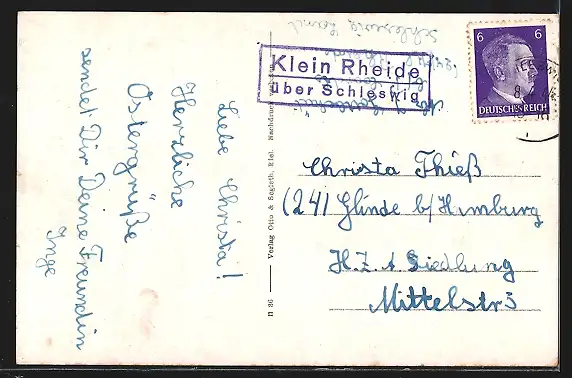 Liebe Christa!
Herzliche
Ostergrüße
sendet Dir Deine Freundin
Inge
Verlag Otto & Sogleth, Kiel. Nachdruck
H 86
Schleswig Land
Klein Rheide
über Schleswig
6 6
DEUTSCHES REICH
Christa Thieß
(24) Glinde b/Hamburg
H.Z.A Siedlung
Mittelstr 3